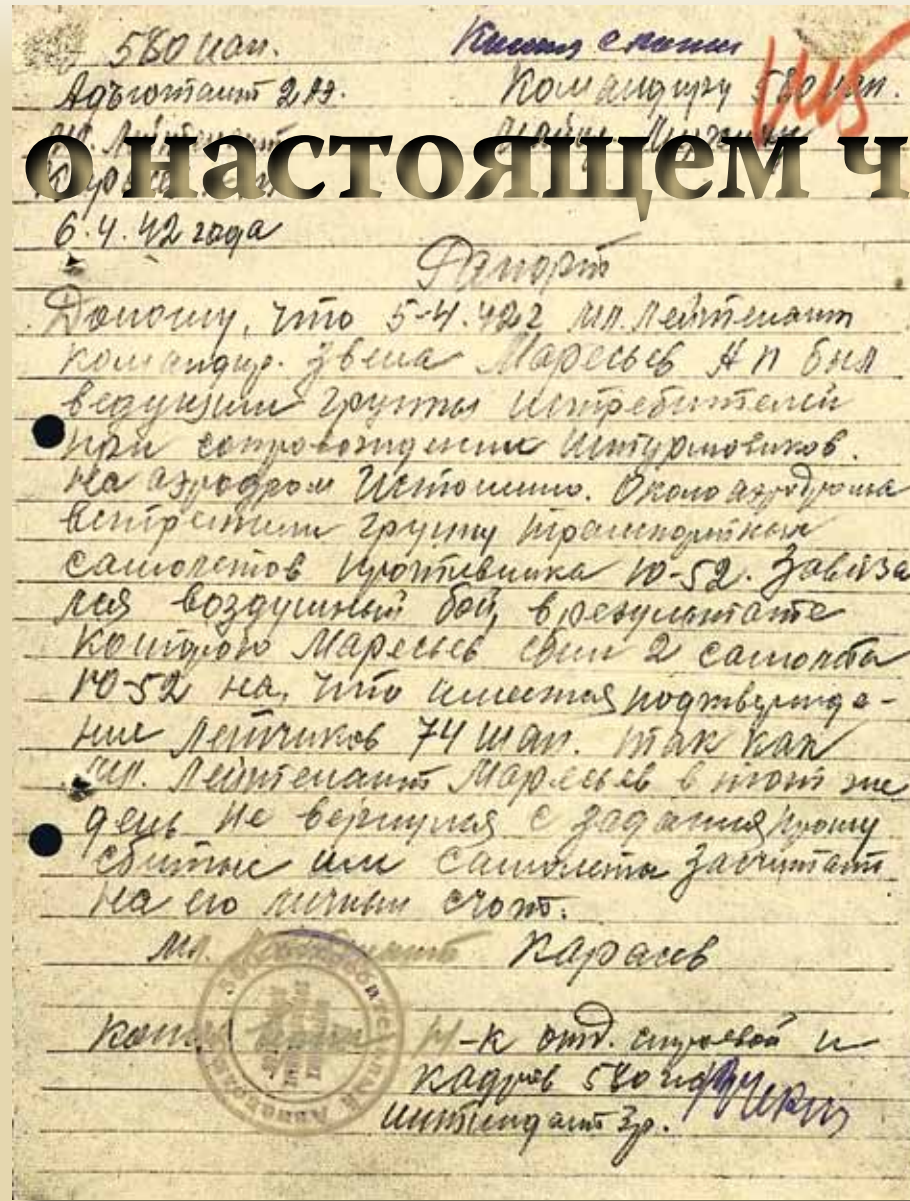 580 иап.
Адъютант 2 АЭ.
Командиру 580 иап.
мл. лейтенант
Майору
о настоящем ч
6.4.42 года
Рапорт
Доношу, что 5-4.42г мл. лейтенант
командир. звена Маресьев А П был
ведущим группы истребителей
при сопровождении штурмовиков.
на аэродром Истошино. Около аэродрома
встретили группу транспортных
самолетов противника Ю-52. Завяза
лся воздушный бой, в результате
которого Маресьев сбил 2 самолета
Ю-52 на, что имеется подтвержде-
ние летчиков 74 шап. так как
мл. лейтенант Маресьев в тот же
день не вернулся с задания прошу
сбитые им самолеты засчитать
на его личный счот.
мл. лейтенант Карасев
Н-к отд. строевой и
кадров 580 иап
интендант 3р.